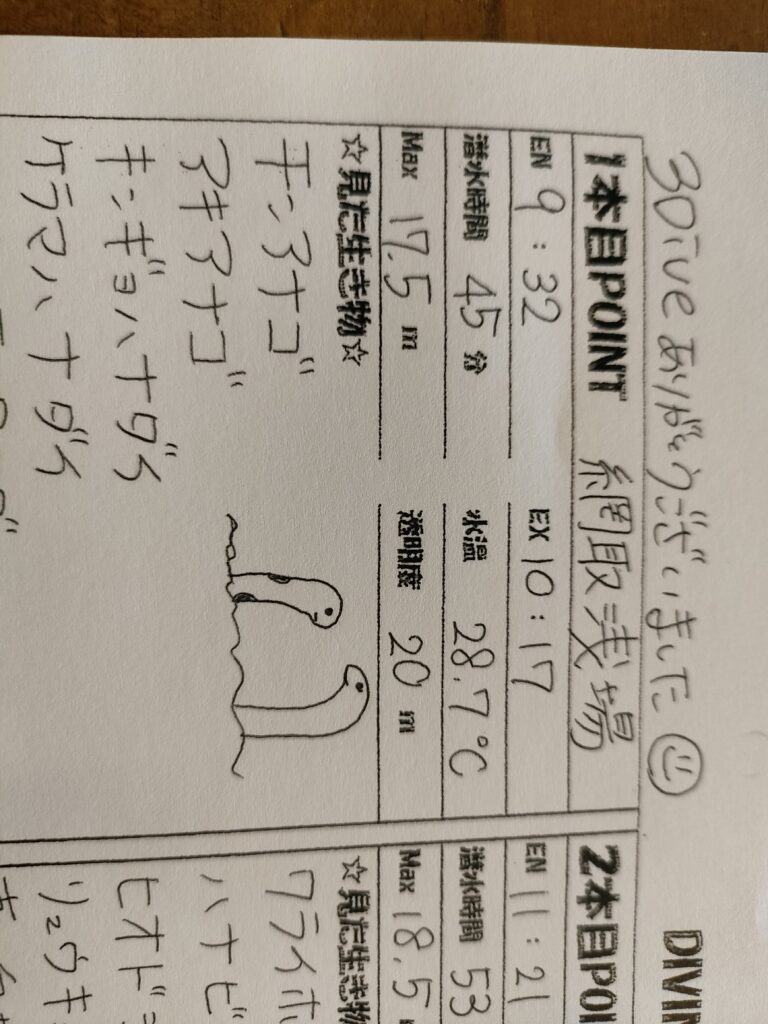 3Dive ありがとうございました
DIVIN
1本目POINT 網取浅場
EN 9:32 EX 10:17
潜水時間 45 分 水温 28.7℃
Max 17.5 m 透明度 20 m
☆見た生き物☆
チンアナゴ
アキアナゴ
キンギョハナダイ
ケラマハナダイ
2本目POI
EN 11:21
潜水時間 53
Max 18.5
☆見た生き物
ワライボ
ハナビ
ヒオドシ
リュウキ